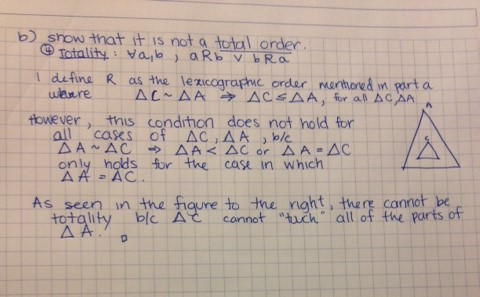 b) show that it is not a total order.
④ Totality : ∀a,b , aRb ∨ bRa
I define R as the lexicographic order mentioned in part a
where △C ~ △A ⇒ △C ≤ △A, for all △C, △A
However, this condition does not hold for
all cases of △C, △A , b/c
△A ~ △C ⇒ △A < △C or △A = △C
only holds for the case in which
△A = △C.
A
C
As seen in the figure to the right, there cannot be
totality b/c △C cannot "tuch" all of the parts of
△A. □